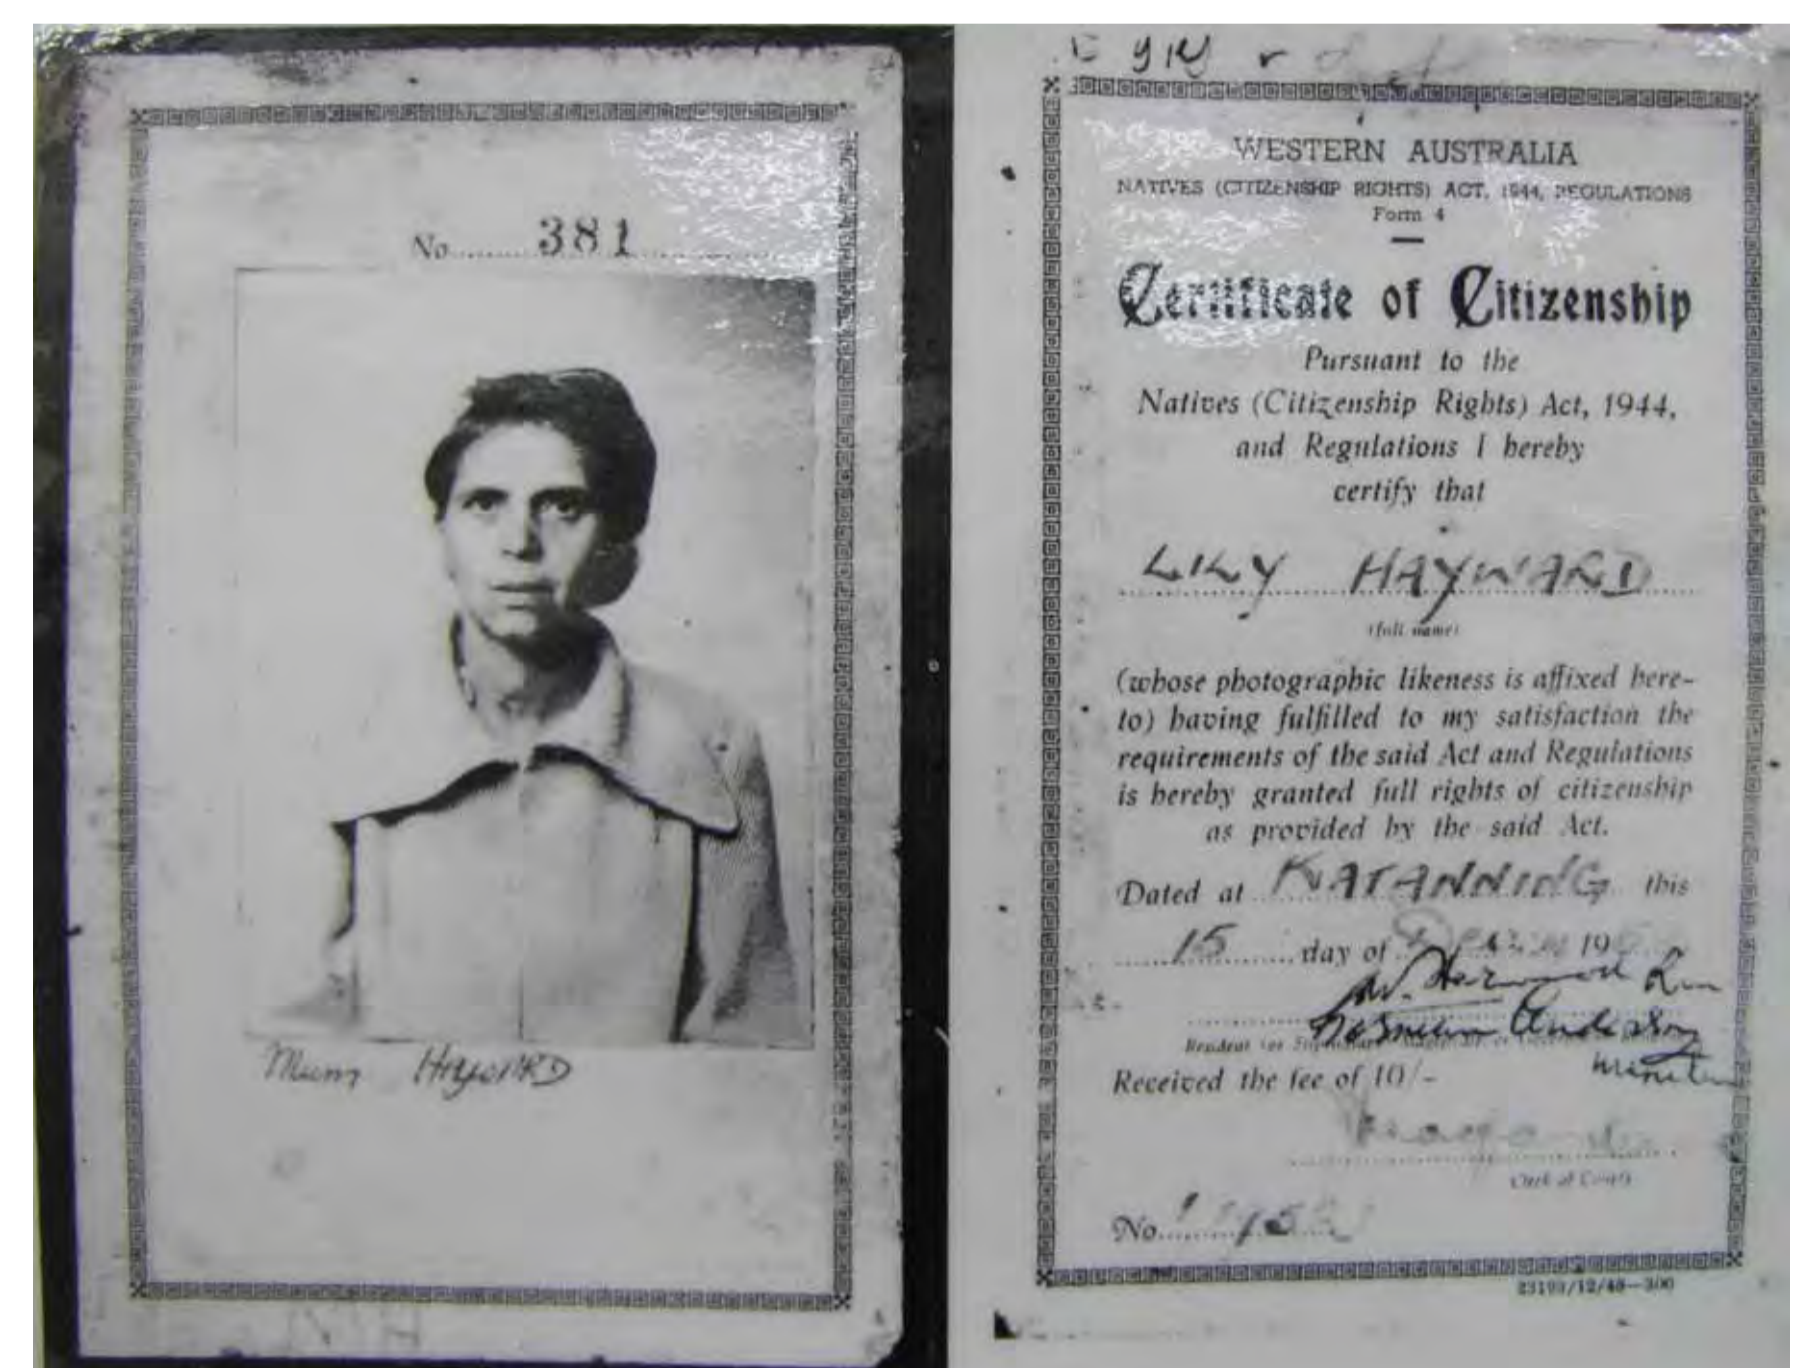 No. 381
Mum HAYWARD
WESTERN AUSTRALIA
NATIVES (CITIZENSHIP RIGHTS) ACT, 1944, REGULATIONS
Form 4
Certificate of Citizenship
Pursuant to the
Natives (Citizenship Rights) Act, 1944,
and Regulations I hereby
certify that
LILY HAYWARD
(full name)
(whose photographic likeness is affixed here-
to) having fulfilled to my satisfaction the
requirements of the said Act and Regulations
is hereby granted full rights of citizenship
as provided by the said Act.
Dated at KATANNING this
15 day of 19
Anderson
Received the fee of 10/-
Clerk of Court
No.
23193/12/48—300